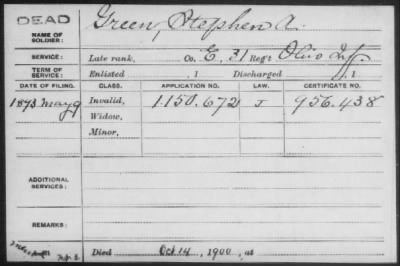 DEAD
NAME OF SOLDIER: Green, Stephen A.
SERVICE: Late rank, Co. E, 31 Reg't Ohio Inf.
TERM OF SERVICE: Enlisted , 1 Discharged , 1
DATE OF FILING. CLASS. APPLICATION NO. LAW. CERTIFICATE NO.
1893 May 9 Invalid, 1.150.672 J 956.438
Widow,
Minor,
ADDITIONAL SERVICES:
REMARKS:
Died Oct. 14, 1900, at